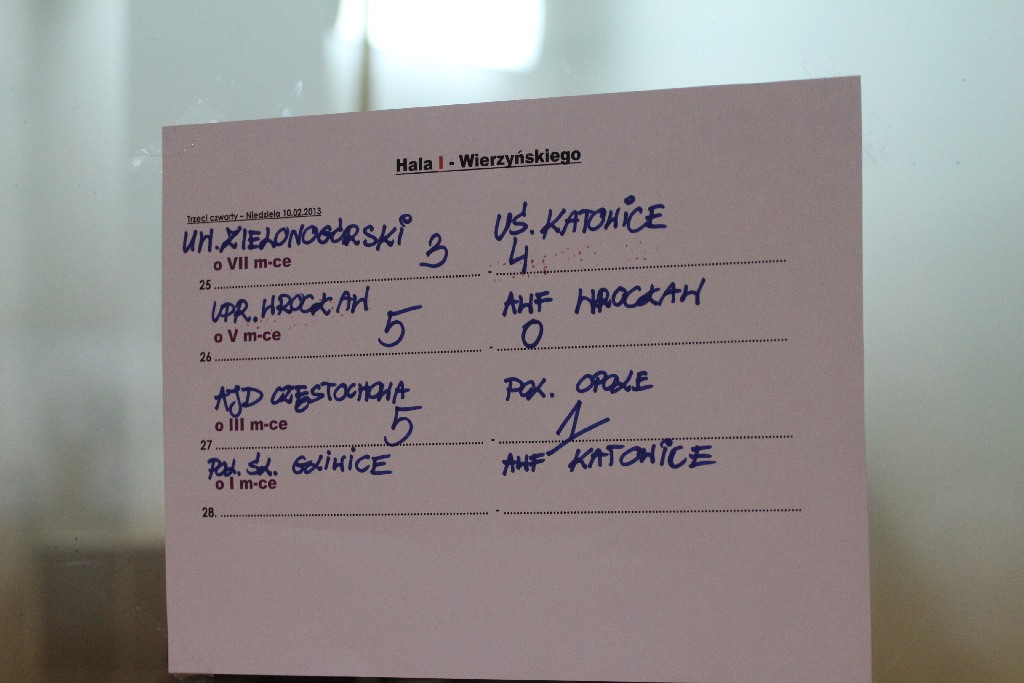 Hala I - Wierzyńskiego
Trzeci czwarty – Niedziela 10.02.2013
UW. ZIELONOGÓRSKI 3 UŚ. KATOWICE
o VII m-ce 4
25 - 
UPR. WROCŁAW 5 AWF WROCŁAW
o V m-ce 0
26 - 
AJD CZĘSTOCHOWA POL. OPOLE
o III m-ce 5 1
27 - 
POL. ŚL. GLIWICE AWF KATOWICE
o I m-ce
28. -